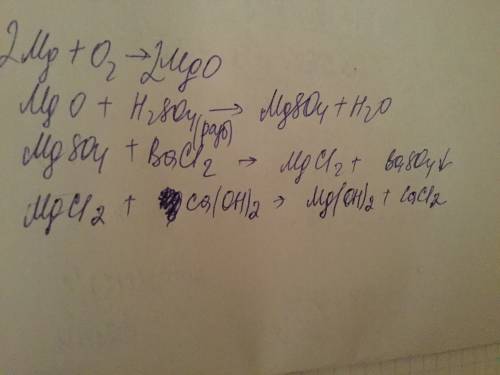 2Mg + O₂ → 2MgO
MgO + H₂SO₄(разб) → MgSO₄ + H₂O
MgSO₄ + BaCl₂ → MgCl₂ + BaSO₄↓
MgCl₂ + Ca(OH)₂ → Mg(OH)₂ + CaCl₂